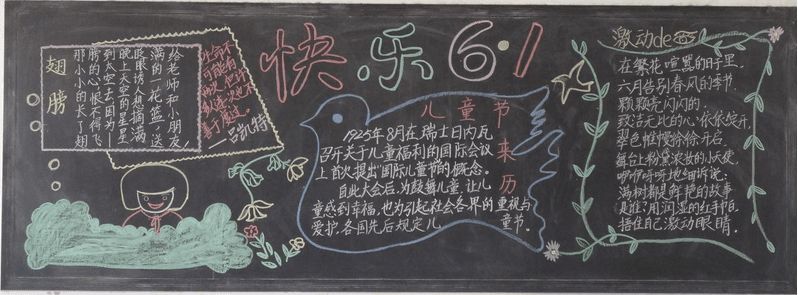 快乐6·1
翅膀
给老师和小朋友,
满的一花篮,送
眨眼诱人想摘满
晚上天空的星星
到太空去,因为一
膀的心,恨不得飞
那小小的长了翅
生命不
可能有
两次,但许
多人连一次也不
善于度过。
—吕凯特
儿童节来历
1925年8月在瑞士日内瓦
召开关于儿童福利的国际会议
上首次提出"国际儿童节"的概念。
自此大会后,为鼓舞儿童,让儿
童感到幸福,也为引起社会各界的重视与
爱护,各国先后规定儿童节。
激动de
在繁花喧嚣的日子里,
六月告别春风的季节.
颗颗亮闪闪的,
致洁无比的心,依依绽开,
翠色帷幔徐徐开启.
舞台上粉黛浓妆的小天使,
咿咿呀呀地细听说:
满树都是鲜艳的故事
是谁:用润湿的红手帕,
捂住自己激动眼睛.